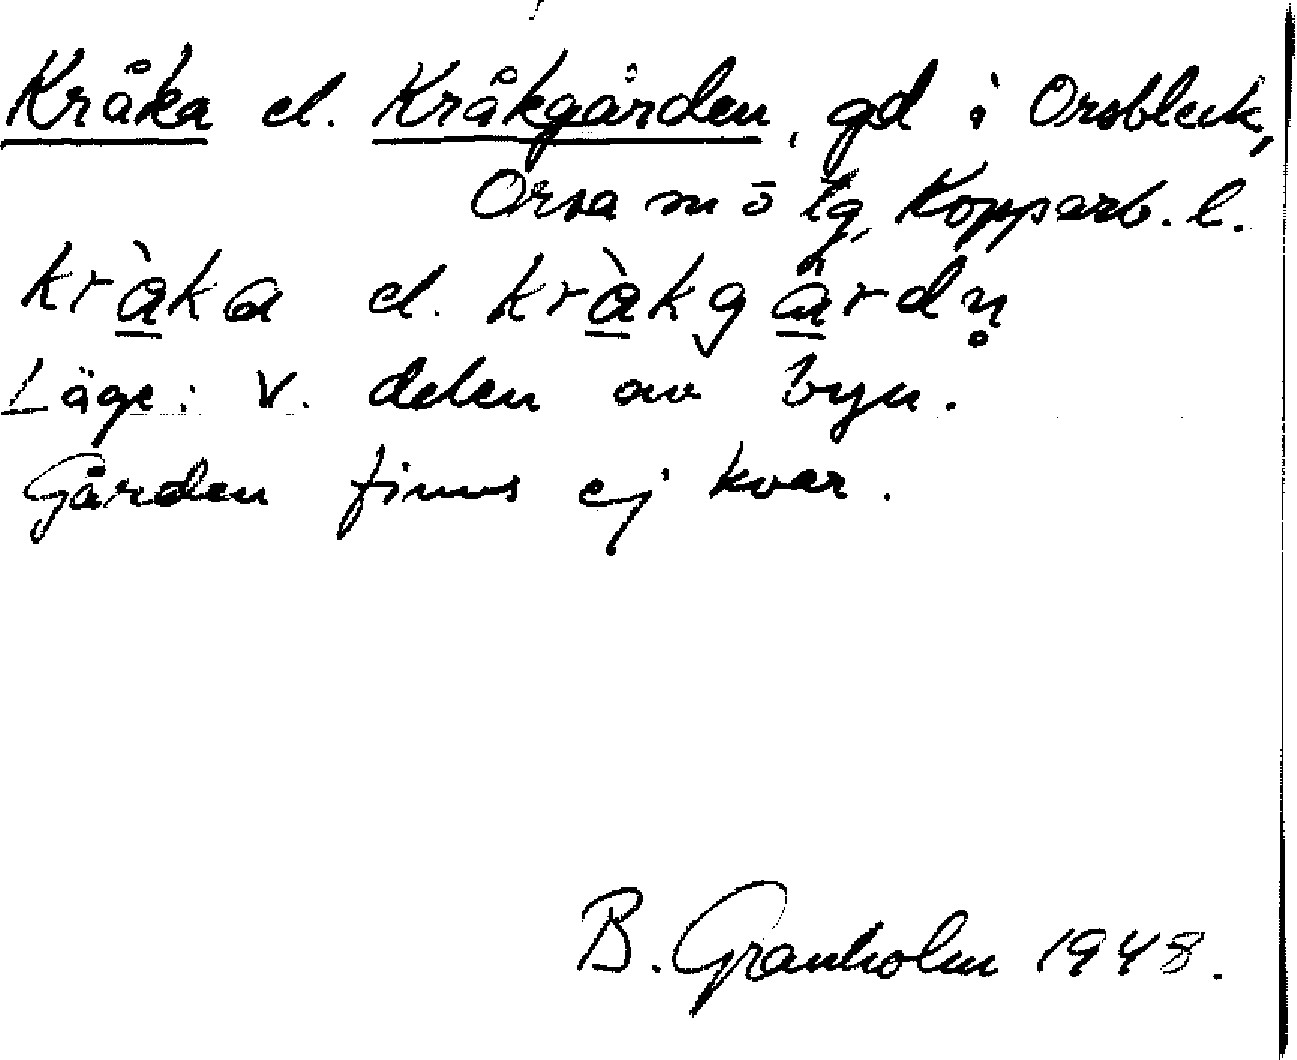 Kråka el. Kråkgården, gd i Orsbleck,
Orsa sn ö tg, Kopparb. l.
kràka el. kràkgårdn̥
Läge: V. delen av byn.
Gården finns ej kvar.
B. Granholm 1948.